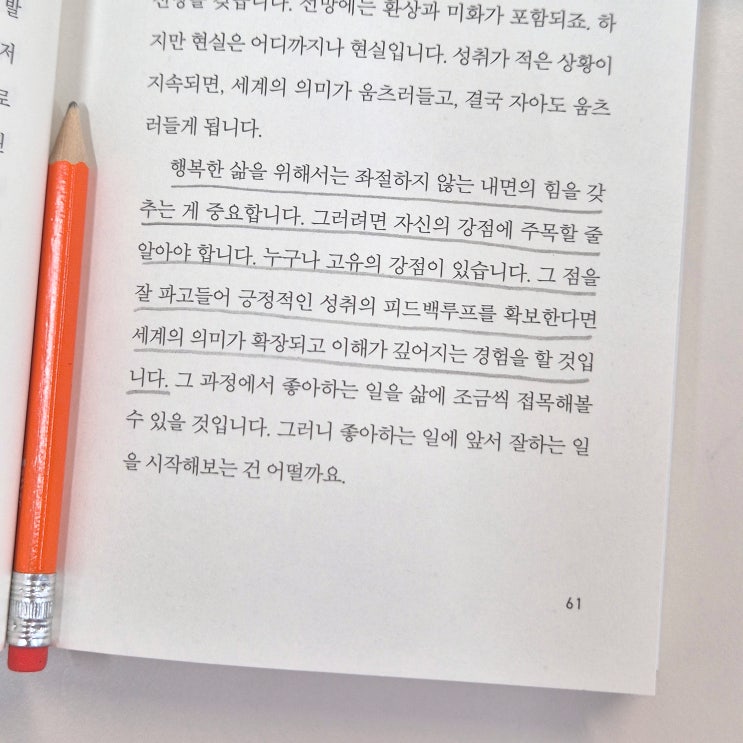 발
저
로
갖습니다. 전망에는 환상과 미화가 포함되죠. 하
지만 현실은 어디까지나 현실입니다. 성취가 적은 상황이
지속되면, 세계의 의미가 움츠러들고, 결국 자아도 움츠
러들게 됩니다.
행복한 삶을 위해서는 좌절하지 않는 내면의 힘을 갖
추는 게 중요합니다. 그러려면 자신의 강점에 주목할 줄
알아야 합니다. 누구나 고유의 강점이 있습니다. 그 점을
잘 파고들어 긍정적인 성취의 피드백루프를 확보한다면
세계의 의미가 확장되고 이해가 깊어지는 경험을 할 것입
니다. 그 과정에서 좋아하는 일을 삶에 조금씩 접목해볼
수 있을 것입니다. 그러니 좋아하는 일에 앞서 잘하는 일
을 시작해보는 건 어떨까요.
61